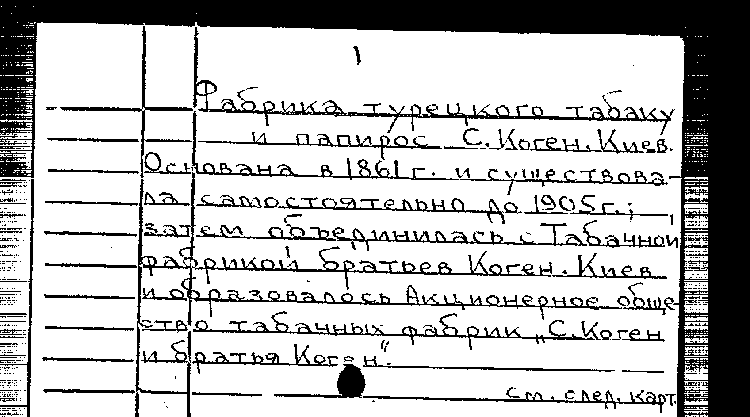 1
Фабрика турецкого табаку
и папирос С. Коген. Киев.
Основана в 1861 г. и существова-
ла самостоятельно до 1905 г.;
затем объединилась с Табачной
фабрикой братьев Коген. Киев
и образовалось Акционерное обще-
ство табачных фабрик „С. Коген
и братья Коген".
см. след. карт.